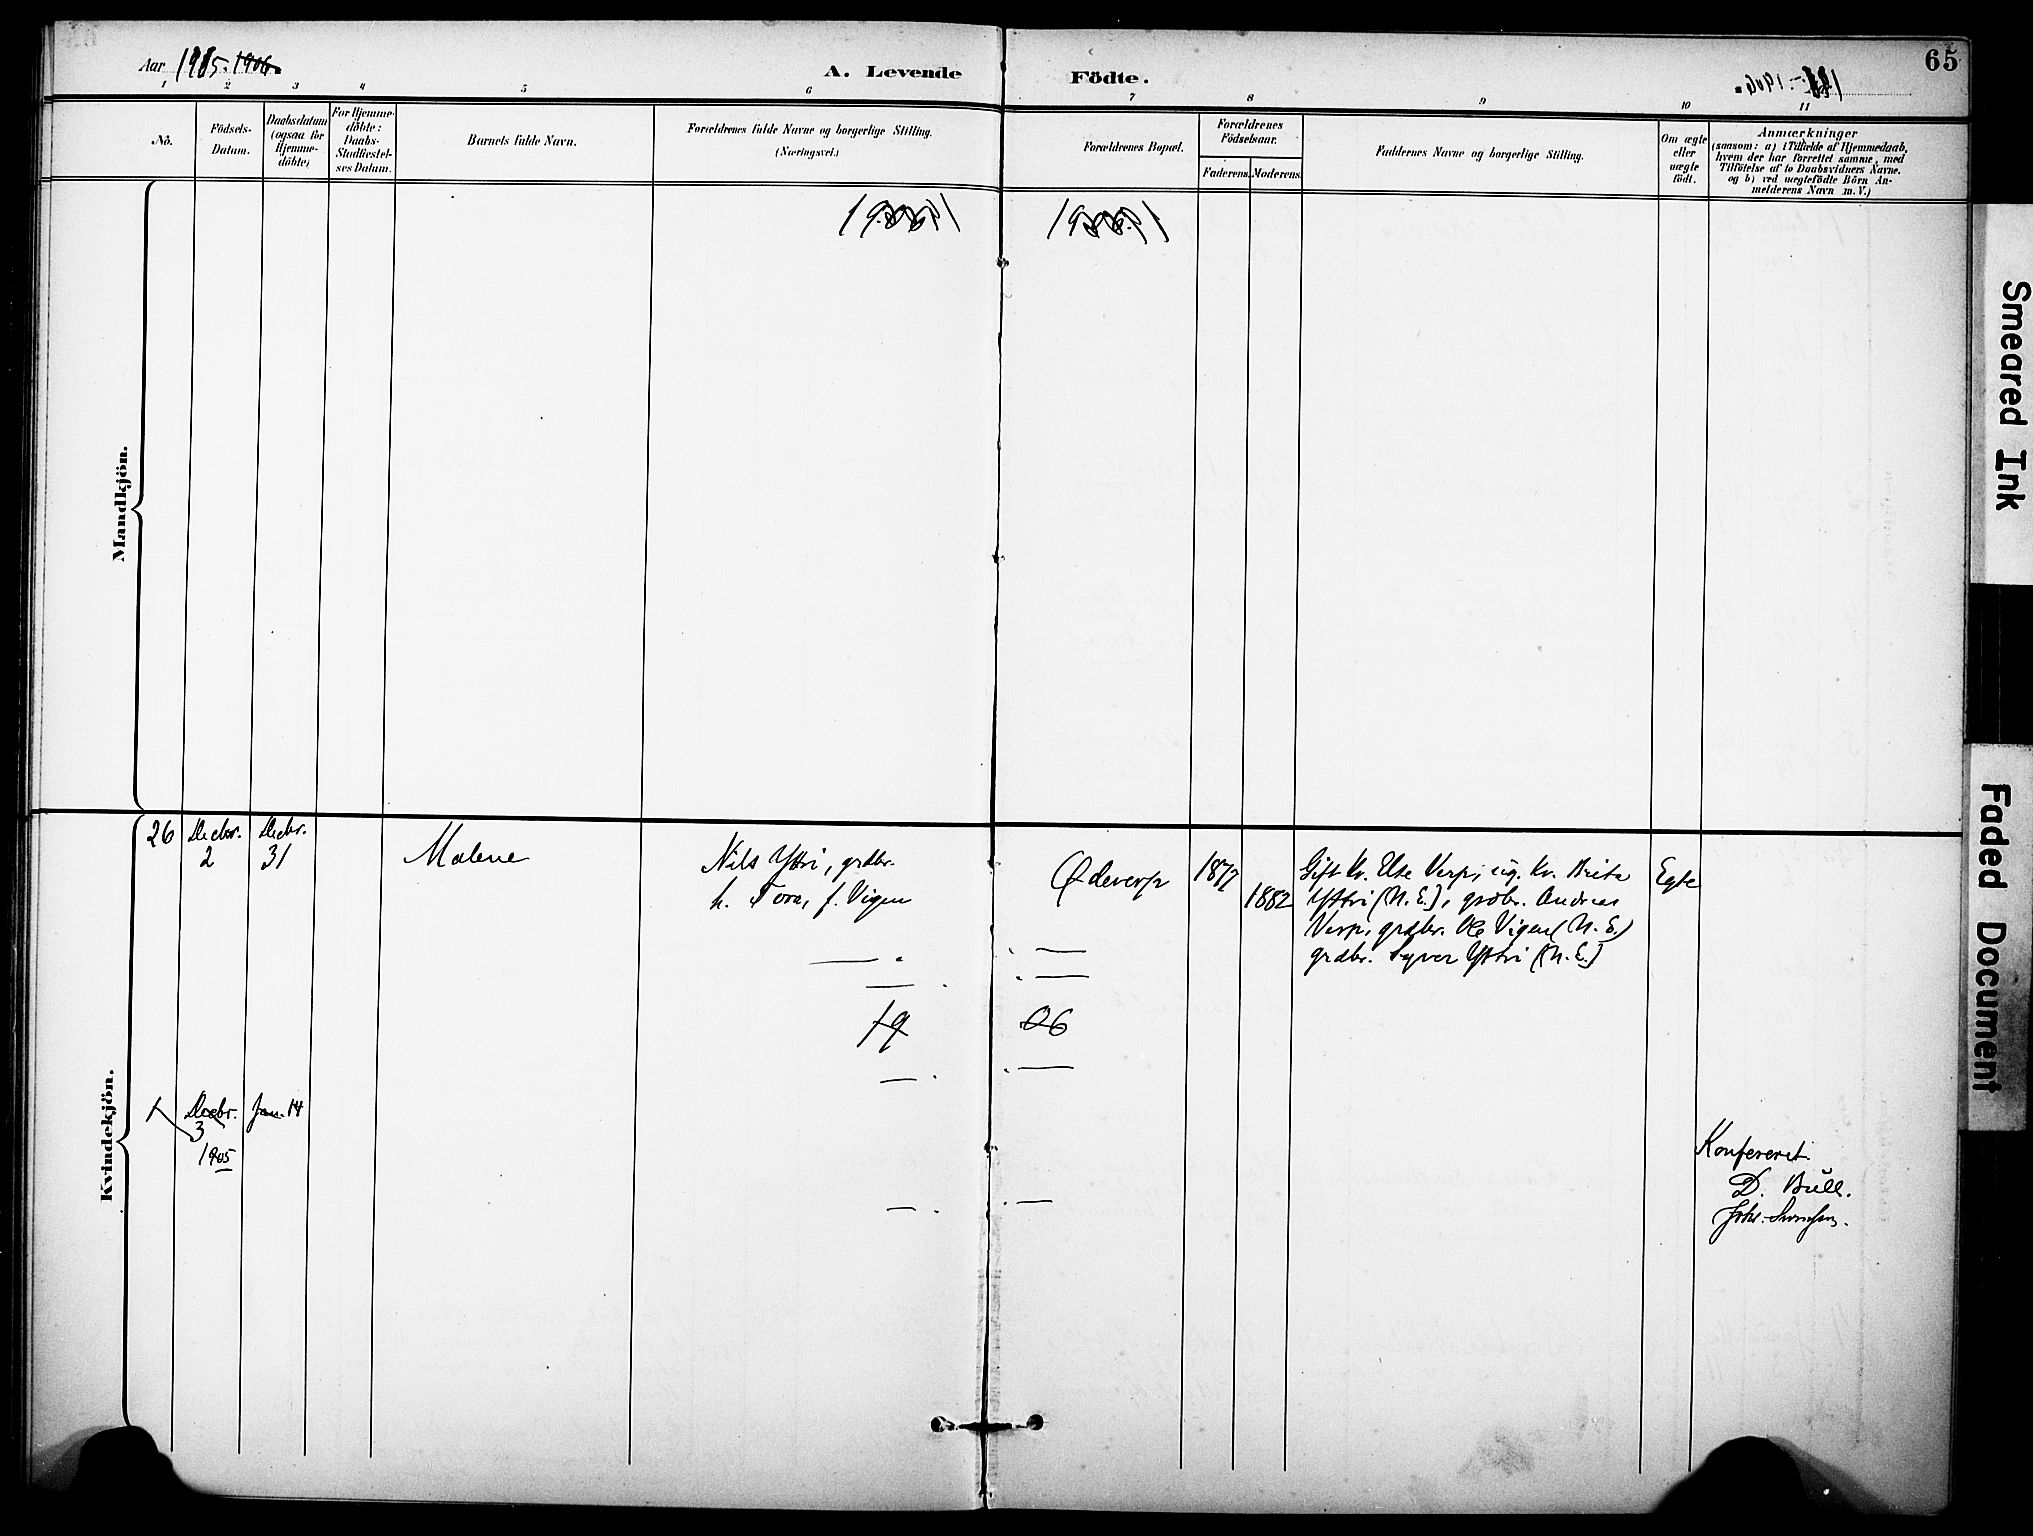 65
Aar 1905. 1906.
A. Levende Födte.
1 2 3 4 5 6 7 8 9 10 11
No.
Födsels-
Datum.
Daabsdatum
(ogsaa for
Hjemme-
döbte)
For Hjemme-
döbte:
Daabs-
Stadfæstel-
ses Datum.
Barnets fulde Navn.
Forældrenes fulde Navne og borgerlige Stilling.
(Næringsvei.)
Forældrenes Bopæl.
Forældrenes
Födselsaar.
Faderens. Moderens.
Faddernes Navne og borgerlige Stilling.
Om ægte
eller
uægte
födt.
Anmærkninger
(saasom: a) i Tilfælde af Hjemmedaab,
hvem der har forrettet samme, med
Tilföielse af to Daabsvidners Navne.
og b) ved uægtefödte Börn An-
melderens Navn m. V.)
Mandkjön.
Kvindekjön.
26
Decbr.
2
Decbr.
31
Malene
Nils Yttri, grdbr.
h. Tora, f. Vigen
Ødeverp
1877
1882
Gift Kv. Else Verp, ug. Kv. Brita
Yttri (N. E.), grdbr. Andreas
Verp, grdbr. Ole Vigen (N. E.)
grdbr. Syver Yttri (N. E.)
Egte
19 06
1
Decbr.
3
1905
Jan. 14
Konfereret.
D. Bull.
Smeared Ink
Faded Document